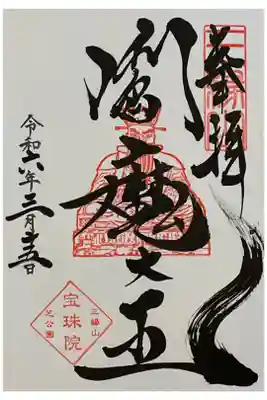 奉拝
閻魔大王
令和六年三月十五日
三縁山
宝珠院
芝公園